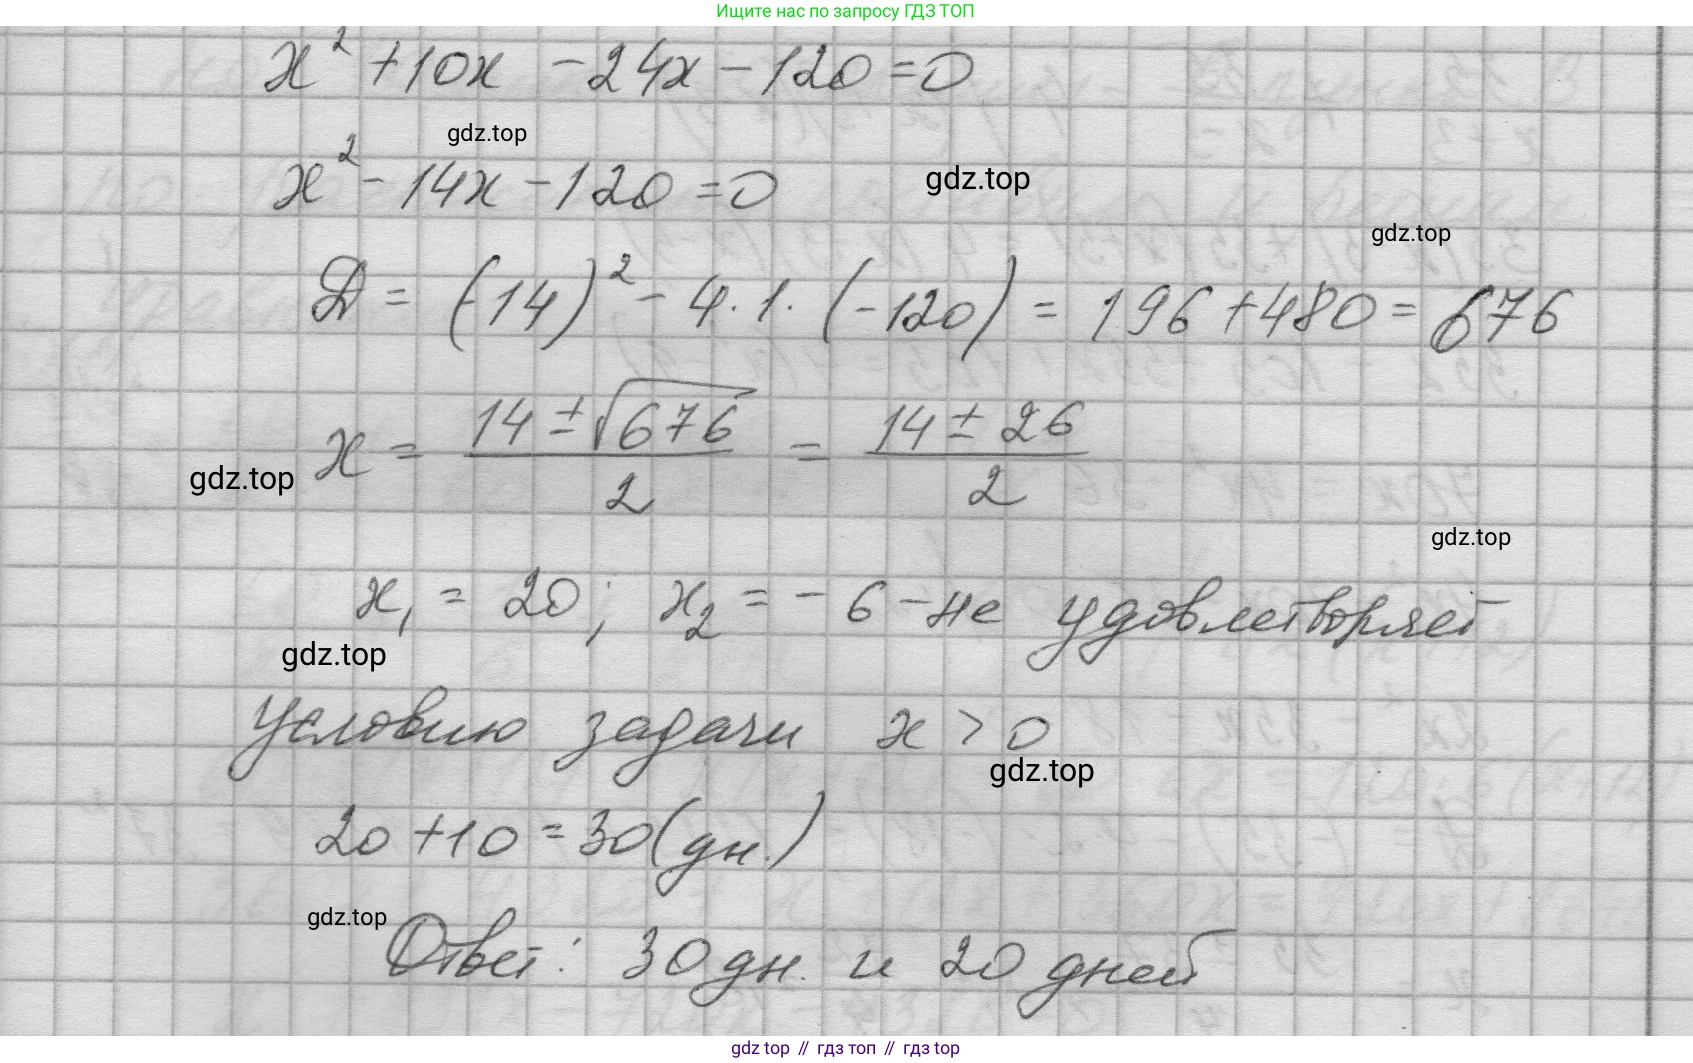 Ищите нас по запросу ГДЗ ТОП
x² + 10x - 24x - 120 = 0
gdz.top
x² - 14x - 120 = 0
gdz.top
gdz.top
D = (-14)² - 4 · 1 · (-120) = 196 + 480 = 676
x = (14 ± √676)/2 = (14 ± 26)/2
gdz.top
gdz.top
x₁ = 20; x₂ = -6 - не удовлетворяет
gdz.top
условию задачи x > 0
gdz.top
20 + 10 = 30 (дн.)
gdz.top
Ответ: 30 дн. и 20 дней
gdz top // гдз топ // гдз top